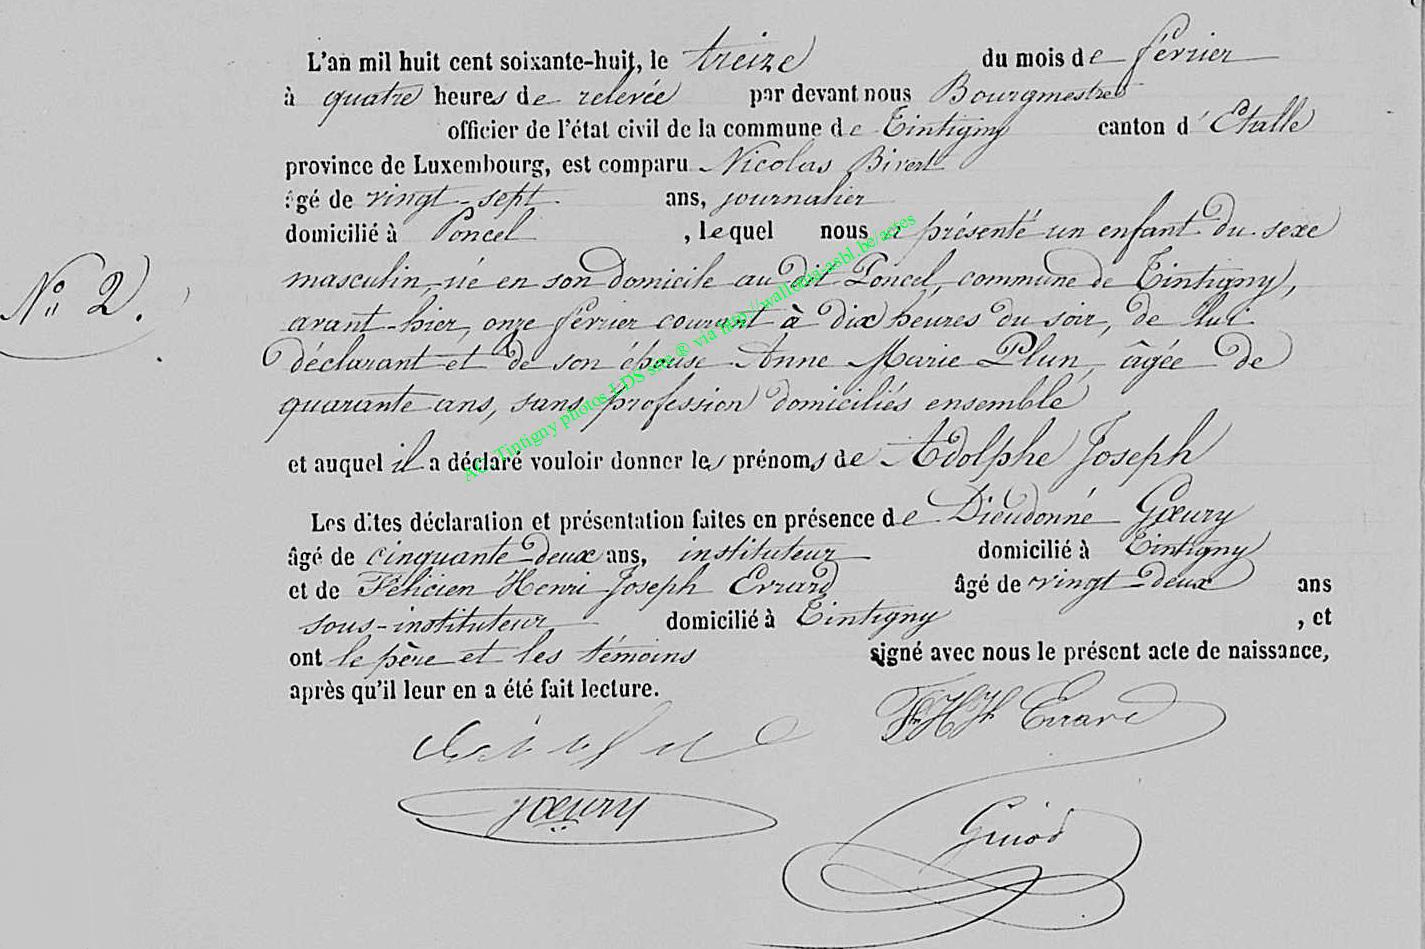 L'an mil huit cent soixante-huit, le treize du mois de février
à quatre heures de relevée par devant nous Bourgmestre
officier de l'état civil de la commune de Tintigny canton d'Etalle
province de Luxembourg, est comparu Nicolas Bivert
âgé de vingt-sept ans, journalier
domicilié à Poncel, lequel nous a présenté un enfant du sexe
masculin, né en son domicile au dit Poncel, commune de Tintigny,
N° 2.
avant-hier, onze février courant à dix heures du soir, de lui
déclarant et de son épouse Anne Marie Plun, âgée de
quarante ans, sans profession domiciliés ensemble
et auquel il a déclaré vouloir donner les prénoms de Adolphe Joseph
Les dites déclaration et présentation faites en présence de Dieudonné Gœury
âgé de cinquante-deux ans, instituteur domicilié à Tintigny
et de Félicien Henri Joseph Errard âgé de vingt-deux ans
sous-instituteur domicilié à Tintigny, et
ont le père et les témoins signé avec nous le présent acte de naissance,
après qu'il leur en a été fait lecture.
Errard
Gœury
AC Tintigny photos LDS src ® via http://wallonia-asbl.be/actes